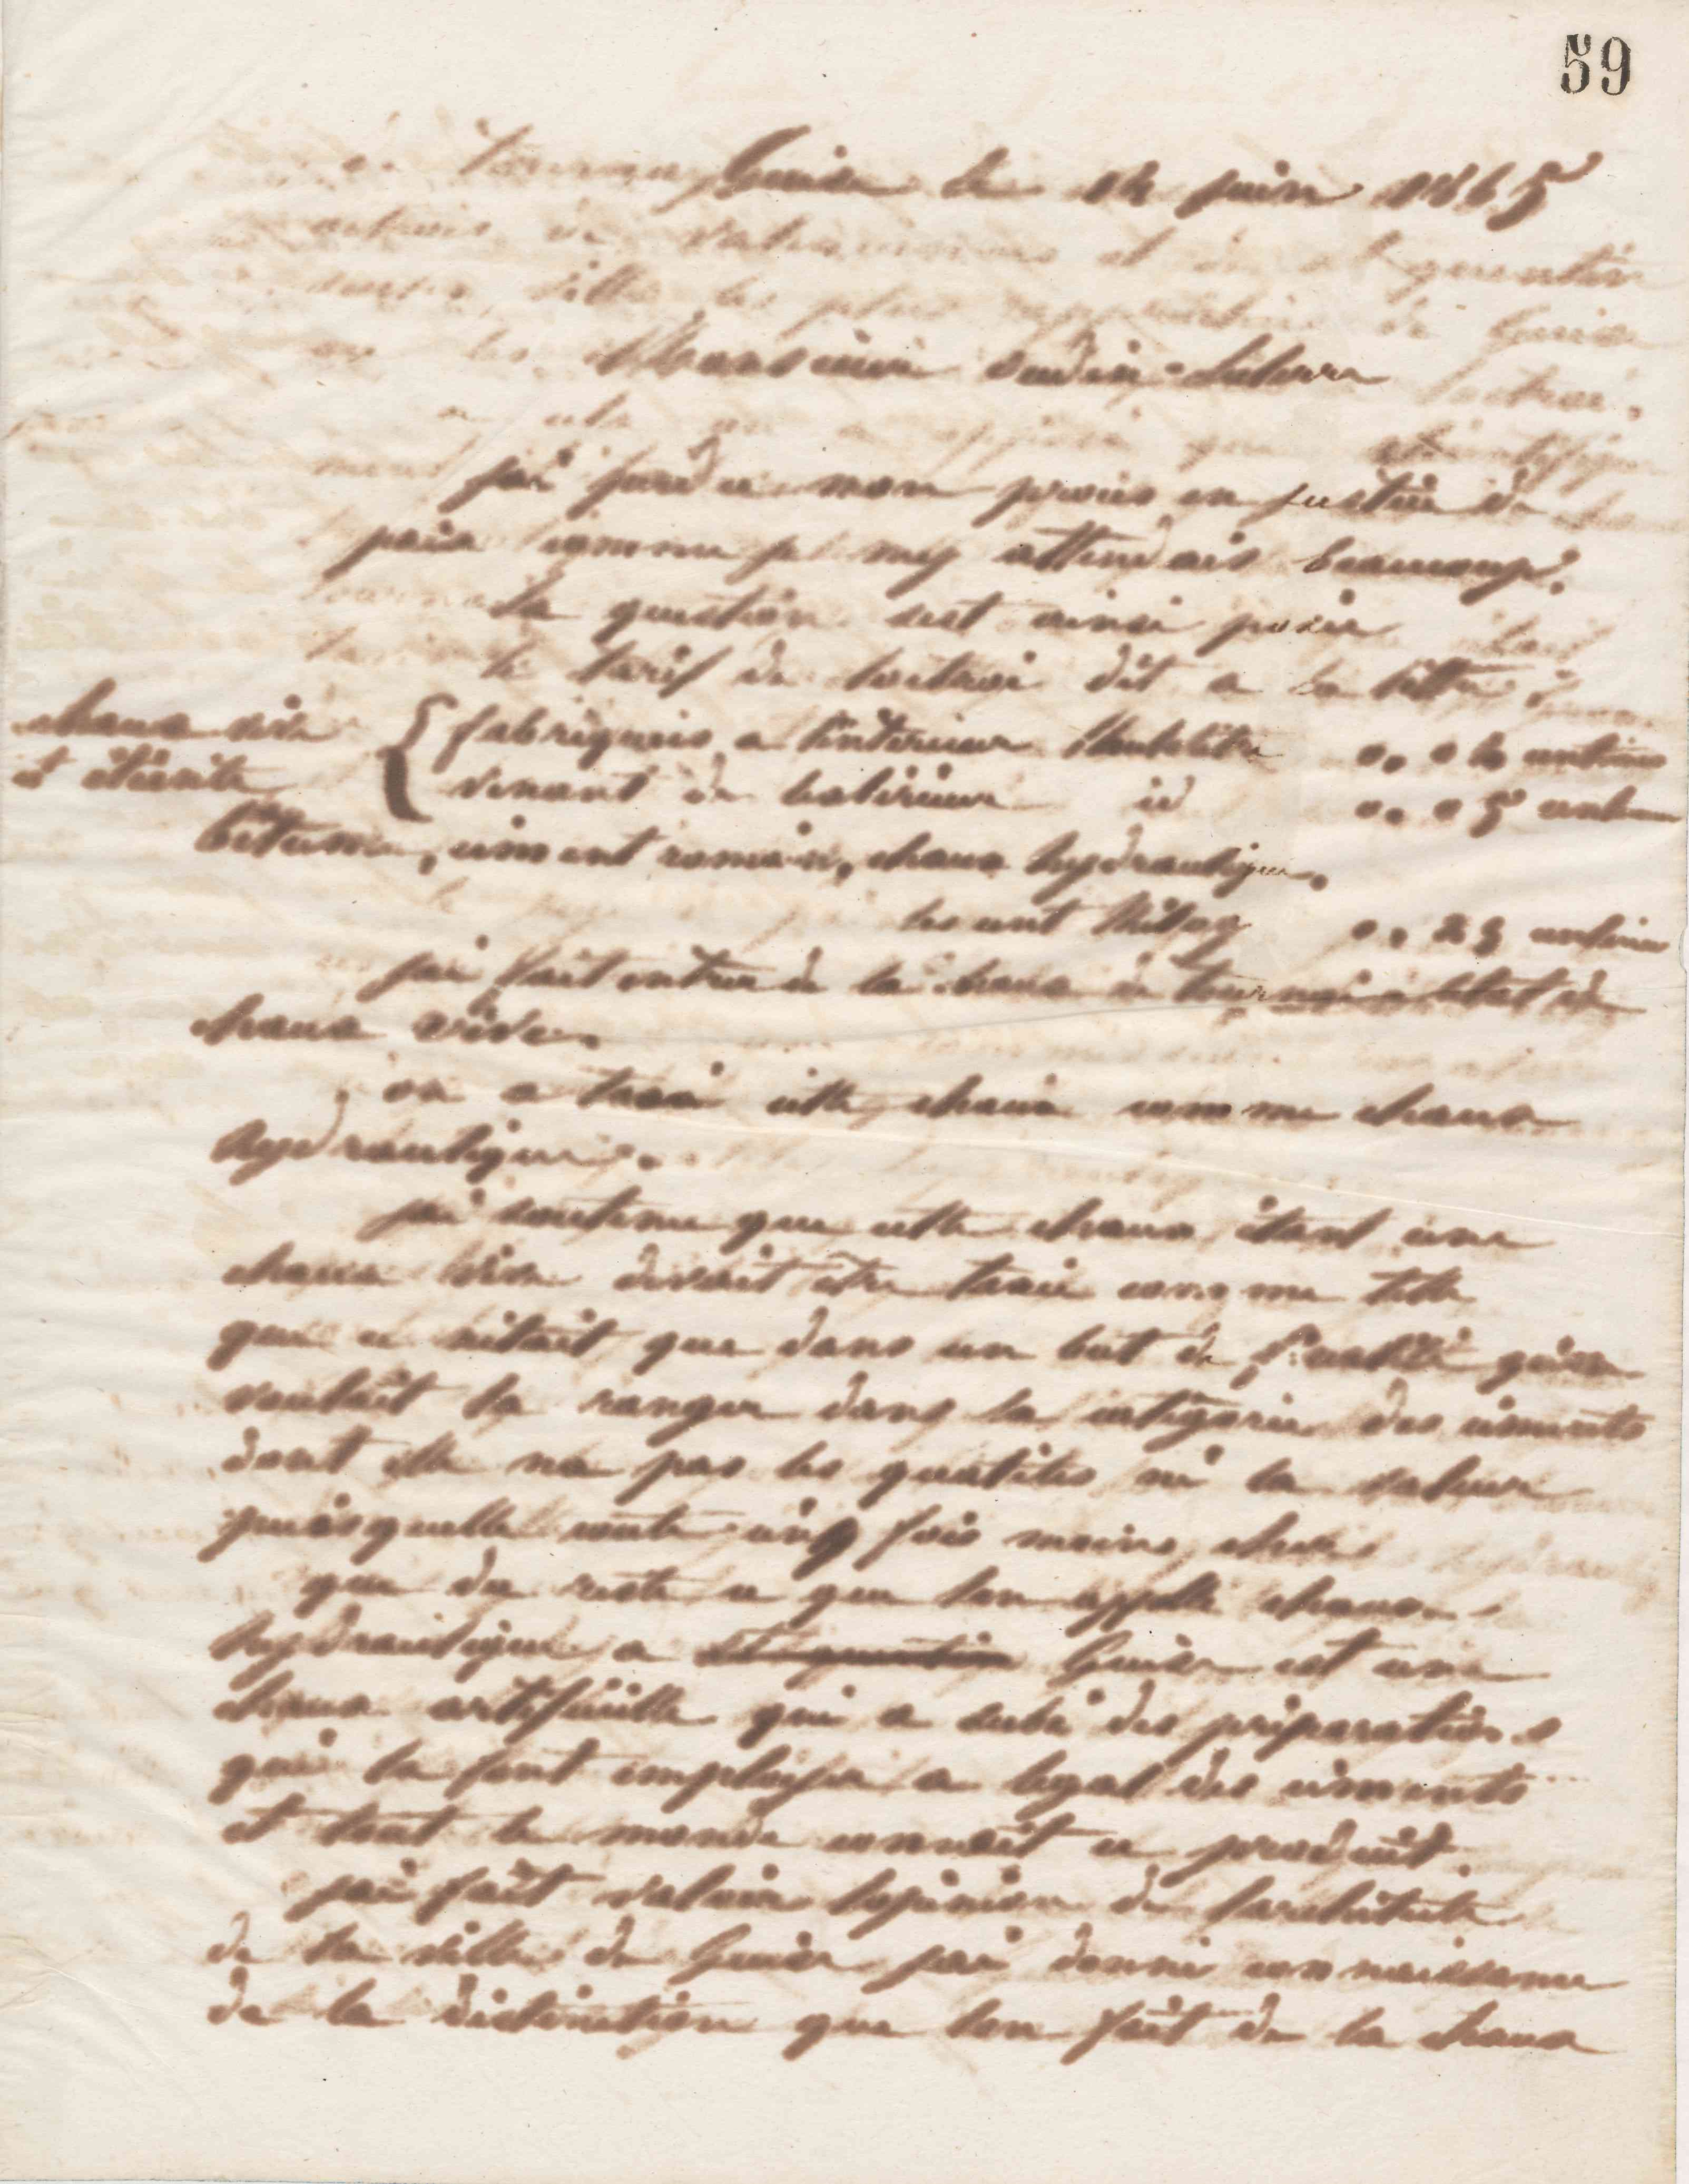 59
Guise le 14 juin 1865
Monsieur Oudin-Leclere
jai perdu mon procès en justice de
paix comme je my attendais beaucoup.
la question sest ainsi posée
le tarif de loctroi dit a la lettre
chaux vive
et éteinte
{ fabriquées a lintérieur lhectolitre 0.04 centimes
venant de lextérieur id 0.05 centimes
bitume, ciment romain, chaux hydraulique,
les cent kilog 0.25 centimes
jai fait entrer de la chaux de tournai a létat de
chaux vive.
on a taxé cette chaux comme chaux
hydraulique.
jai soutenu que cette chaux étant une
chaux vive devait être taxée comme telle
que ce nétait que dans un but de fiscalité quon
voulait la ranger dans la catégorie des ciments
dont elle na pas les qualités ni la valeur
puisquelle coute cinq fois moins cher
que du reste ce que lon appelle chaux
hydraulique a St quentin Guise est une
chaux artificielle qui a subi des préparations
qui la font employer a légal des ciments
et tout le monde connait ce produit.
jai fait valoir lopinion de larchitecte
de la ville de Guise jai donné connaissance
de la distinction que lon fait de la chaux